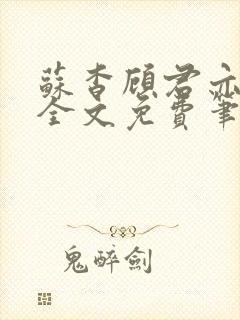 蘇杳顧君亦
全文免費筆
鬼醉劍